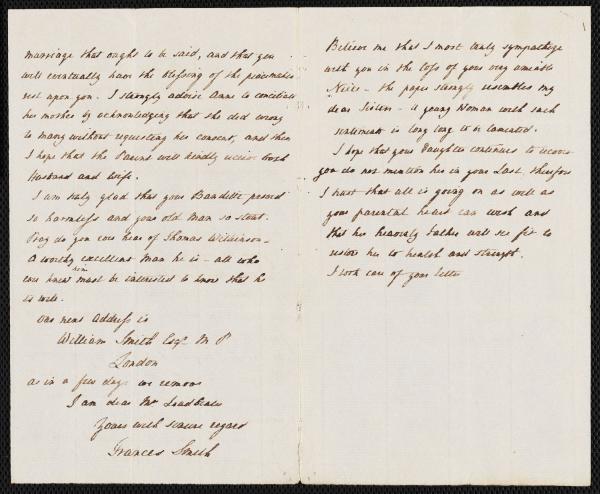 marriage that ought to be said, and that you
will eventually have the blessing of the peacemaker
rest upon you. I strongly advise Anne to conciliate
her mother by acknowledging that she did wrong
to marry without requesting her consent, and then
I hope that the Parent will kindly receive both
Husband and wife.
I am truly glad that your Banditti proved
so harmless and your old Man so stout.
Pray do you ever hear of Thomas Wilkinson -
A worthy excellent Man he is - all who
ever knew him must be interested to know that he
is well.
Our next Address is
William Smith Esqr. M P
London
as in a few days we remove
I am dear Mrs Leadbeater
Yours with sincere regard
Frances Smith
1
Believe me that I most truly sympathize
with you in the loss of your very amiable
Niece - the paper strongly resembles my
dear Sisters - A young Woman with such
sentiments is long long to be lamented.
I hope that your Daughter continues to recover
you do not mention her in your Last, therefore
I trust that all is going on as well as
your parental heart can wish and
that her heavenly Father will see fit to
restore her to health and strength.
I took care of your letter